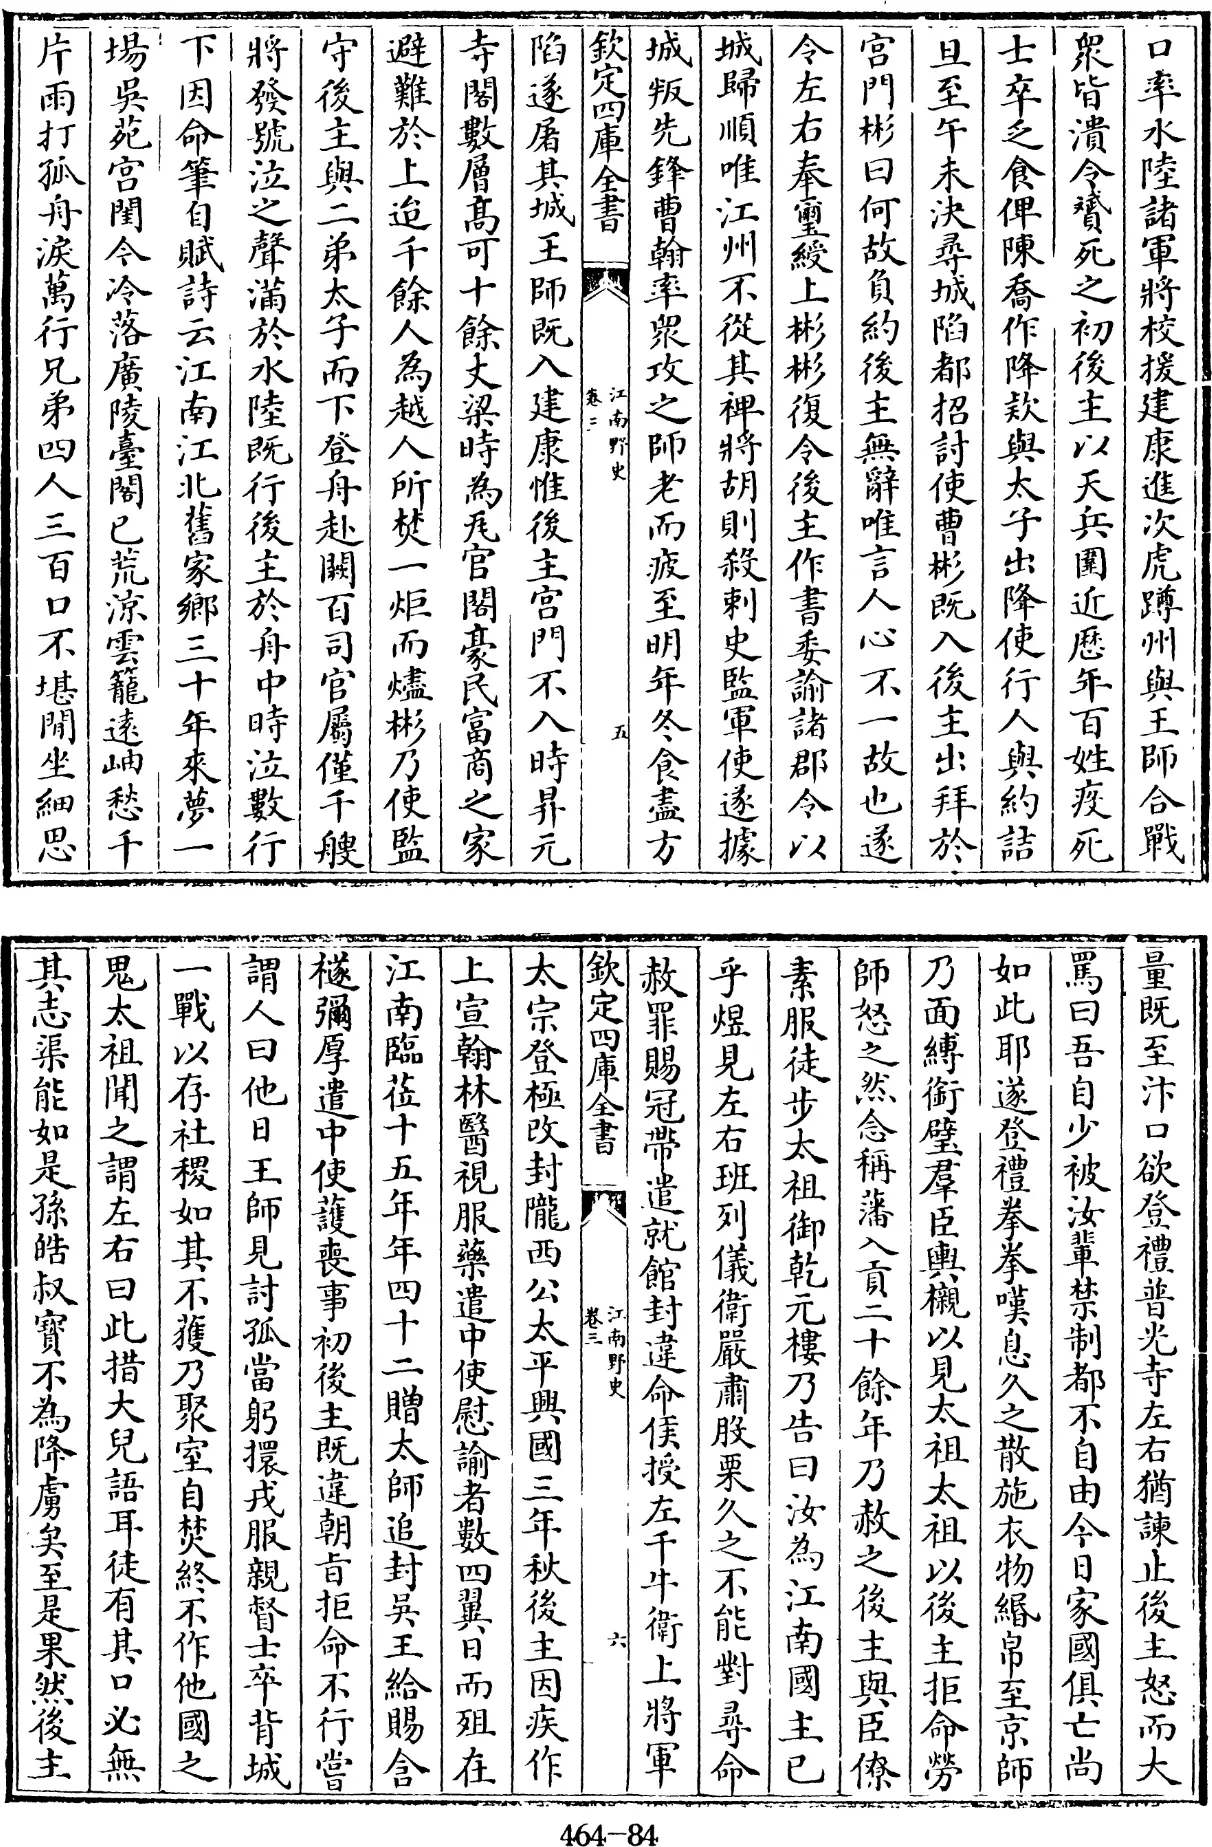 口率水陸諸軍將校援建康進次虎蹲州與王師合戰
衆皆潰令贇死之初後主以天兵圍近歴年百姓疫死
士卒乏食俾陳喬作降欵與太子出降使行人與約詰
旦至午未決尋城陷都招討使曹彬既入後主出拜於
宫門彬曰何故負約後主無辭唯言人心不一故也遂
令左右奉璽綬上彬彬復令後主作書委諭諸郡令以
城歸順唯江州不從其裨將胡則殺刺史監軍使遂據
城叛先鋒曹翰率衆攻之師老而疲至明年冬食盡方
欽定四庫全書
江南野史
卷三
五
陷遂屠其城王師既入建康惟後主宫門不入時昇元
寺閣數層髙可十餘丈梁時為瓦官閣豪民富商之家
避難於上迨千餘人為越人所焚一炬而燼彬乃使監
守後主與二弟太子而下登舟赴闕百司官屬僅千艘
將發號泣之聲滿於水陸既行後主於舟中時泣數行
下因命筆自賦詩云江南江北舊家鄉三十年來夢一
場吳苑宫闈今冷落廣陵臺閣已荒涼雲籠遠岫愁千
片雨打孤舟淚萬行兄弟四人三百口不堪閒坐細思
量既至汴口欲登禮普光寺左右猶諫止後主怒而大
罵曰吾自少被汝輩禁制都不自由今日家國俱亡尚
如此耶遂登禮拳拳嘆息久之散施衣物緡帛至京師
乃面縛銜璧羣臣輿櫬以見太祖太祖以後主拒命勞
師怒之然念稱藩入貢二十餘年乃赦之後主與臣僚
素服徒步太祖御乾元樓乃告曰汝為江南國主已
乎煜見左右班列儀衛嚴肅股栗久之不能對尋命
赦罪賜冠帶遣就館封違命侯授左千牛衛上將軍
欽定四庫全書
江南野史
卷三
六
太宗登極改封隴西公太平興國三年秋後主因疾作
上宣翰林醫視服藥遣中使慰諭者數四翼日而殂在
江南臨莅十五年年四十二贈太師追封吳王給賜含
襚彌厚遣中使護喪事初後主既違朝旨拒命不行嘗
謂人曰他日王師見討孤當躬擐戎服親督士卒背城
一戰以存社稷如其不獲乃聚室自焚終不作他國之
鬼太祖聞之謂左右曰此措大兒語耳徒有其口必無
其志渠能如是孫皓叔寳不為降虜矣至是果然後主
464-84